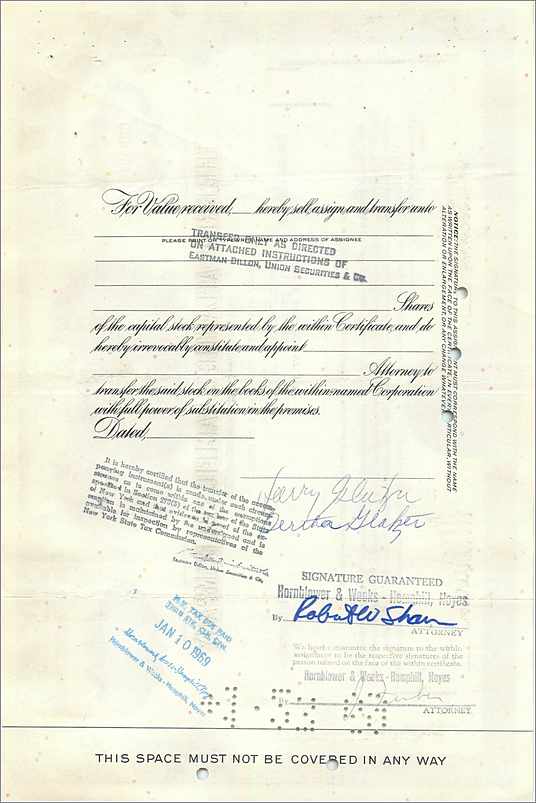 For Value received, hereby sell, assign, and transfer unto
PLEASE PRINT OR TYPEWRITE NAME AND ADDRESS OF ASSIGNEE
TRANSFER ONLY AS DIRECTED
ON ATTACHED INSTRUCTIONS OF
EASTMAN DILLON, UNION SECURITIES & CO.
Shares
of the capital stock represented by the within Certificate, and do
hereby irrevocably constitute and appoint
Attorney to
transfer the said stock on the books of the within-named Corporation
with full power of substitution in the premises.
Dated,
NOTICE: THE SIGNATURE TO THIS ASSIGNMENT MUST CORRESPOND WITH THE NAME
AS WRITTEN UPON THE FACE OF THE CERTIFICATE IN EVERY PARTICULAR, WITHOUT
ALTERATION OR ENLARGEMENT, OR ANY CHANGE WHATEVER.
It is hereby certified that the transfer of the accom-
panying instrument(s) is made under such circum-
stances as to come within one of the exemptions
specified in Section 270(5) of the tax law of the State
of New York and that evidence in proof of the ex-
emption is maintained by the undersigned and is
available for inspection by representatives of the
New York State Tax Commission.
Eastman Dillon, Union Securities & Co.
Bertha
SIGNATURE GUARANTEED
Hornblower & Weeks - Hemphill, Noyes
By Robert W Shaw
ATTORNEY
We hereby guarantee the signature to the within
assignment to be the respective signatures of the
person named on the face of the within certificate.
Hornblower & Weeks - Hemphill, Noyes
By
ATTORNEY
N.Y. TAX PAID
JAN 10 1969
Hornblower & Weeks - Hemphill, Noyes
THIS SPACE MUST NOT BE COVERED IN ANY WAY